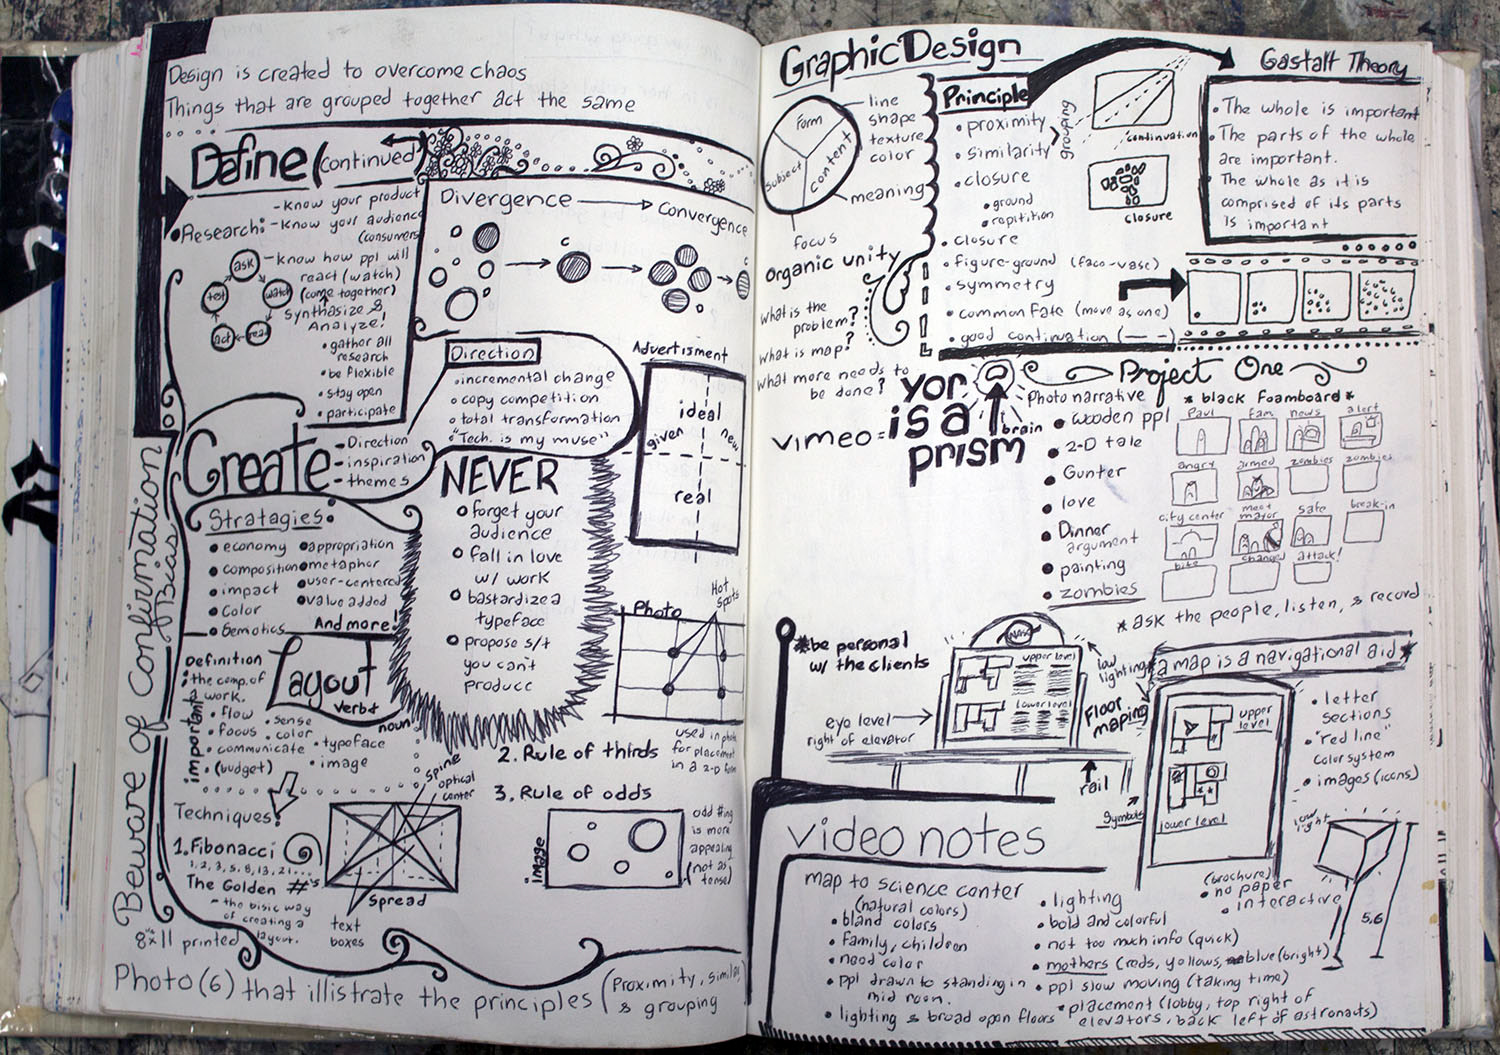 Design is created to overcome chaos
Things that are grouped together act the same
Define (continued)
Research:
-Know your product
-Know your audience
(consumers)
-Know how ppl will
react (watch)
(come together)
Synthasize &
Analyze!
• gather all
research
• be flexible
• stay open
• participate
ask
watch
read
act
test
Divergence
Convergence
c
c
Direction
• incremental change
• copy competition
• total transformation
"Tech. is my muse"
Create
-Direction
-inspiration
-themes
Stratagies:
• economy
• composition
• impact
• Color
• Semotics
• appropriation
• metaphor
• user-centered
• value added
And more!
NEVER
forget your
audience
fall in love
w/ work
bastardize a
typeface
propose s/t
you can't
produce
Advertisment
ideal
given
new
real
Photo
Hot
Spots
used in photo
for placement
in a 2-D form
Beware of Confirmation
Bias
Definition
• the comp. of
a work.
Layout
verb↑
noun
important
• flow
• focus
• communicate
• (budget)
• sense
• color
• typeface
• image
Techniques:
1. Fibonacci
1, 2, 3, 5, 8, 13, 21....
The Golden #'s
- the bisic way
of creating a
layout.
spine
optical
center
Spread
text
boxes
2. Rule of thirds
3. Rule of odds
image
odd #ing
is more
appealing
(not as
tense)
8½x11 printed
Photo (6) that illistrate the principles (Proximity, similar,
& grouping
Graphic Design
Form
Subject
content
line
shape
texture
color
meaning
focus
organic unity
what is the
problem?
what is map?
what more needs to
be done?
Principle
• proximity
• similarity
grouping
• closure
• ground
• repitition
• closure
• figure-ground (face-vase)
• symmetry
• common Fate (move as one)
• good continuation (— —)
continuation
closure
Gastalt Theory
• The whole is important
• The parts of the whole
are important.
• The whole as it is
comprised of its parts
is important
vimeo =
yor
is a
prism
brain
Project One
Photo narrative
• wooden ppl
• 2-D tale
• Gunter
• love
• Dinner
argument
• painting
• zombies
* black Foamboard *
Paul
fam
news
alert
angry
armed
zombies
zombies
city center
meet
mayor
safe
break-in
bite
changed
attack!
* ask the people, listen, & record
*be personal
w/ the clients
NASA
upper level
lower level
eye level
right of elevator
low
lighting
Floor
maping
rail
*a map is a navigational aid*
upper
level
lower level
Symbols
• letter
sections
• "red line"
color system
• images (icons)
low
light
5,6
video notes
map to science center
(natural colors)
• bland colors
• family, children
• need color
• ppl drawn to standing in
mid room.
• lighting & broad open floors
• lighting
• bold and colorful
• not too much info (quick)
• mothers (reds, yellows, blue (bright)
• ppl slow moving (taking time)
• placement (lobby, top right of
elevators, back left of astronauts)
(brochure)
• no paper
• interactive